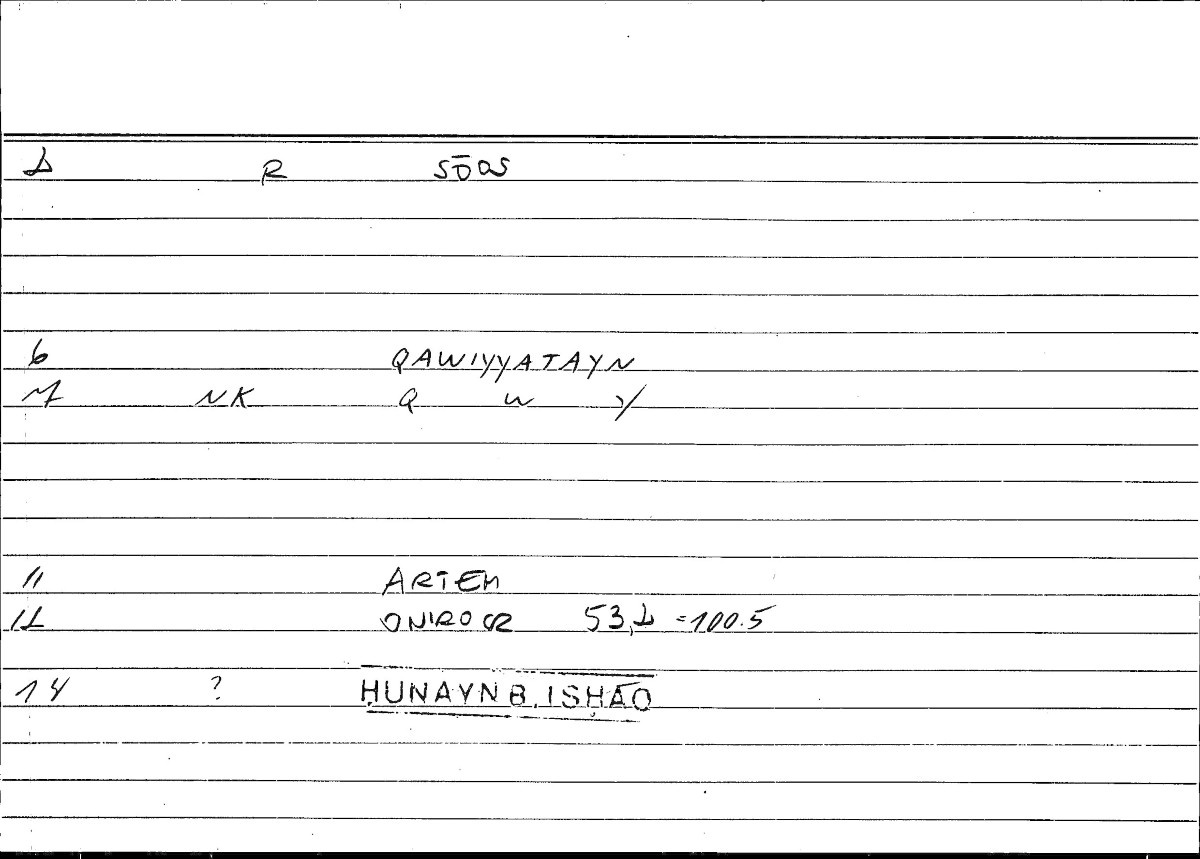 2 R SŌOS
6 QAWIYYATAYN
7 NK Q W Y
11 ARTEM
12 ONIROCR 53,2 =100.5
14 ? ḤUNAYN B. ISḤĀQ